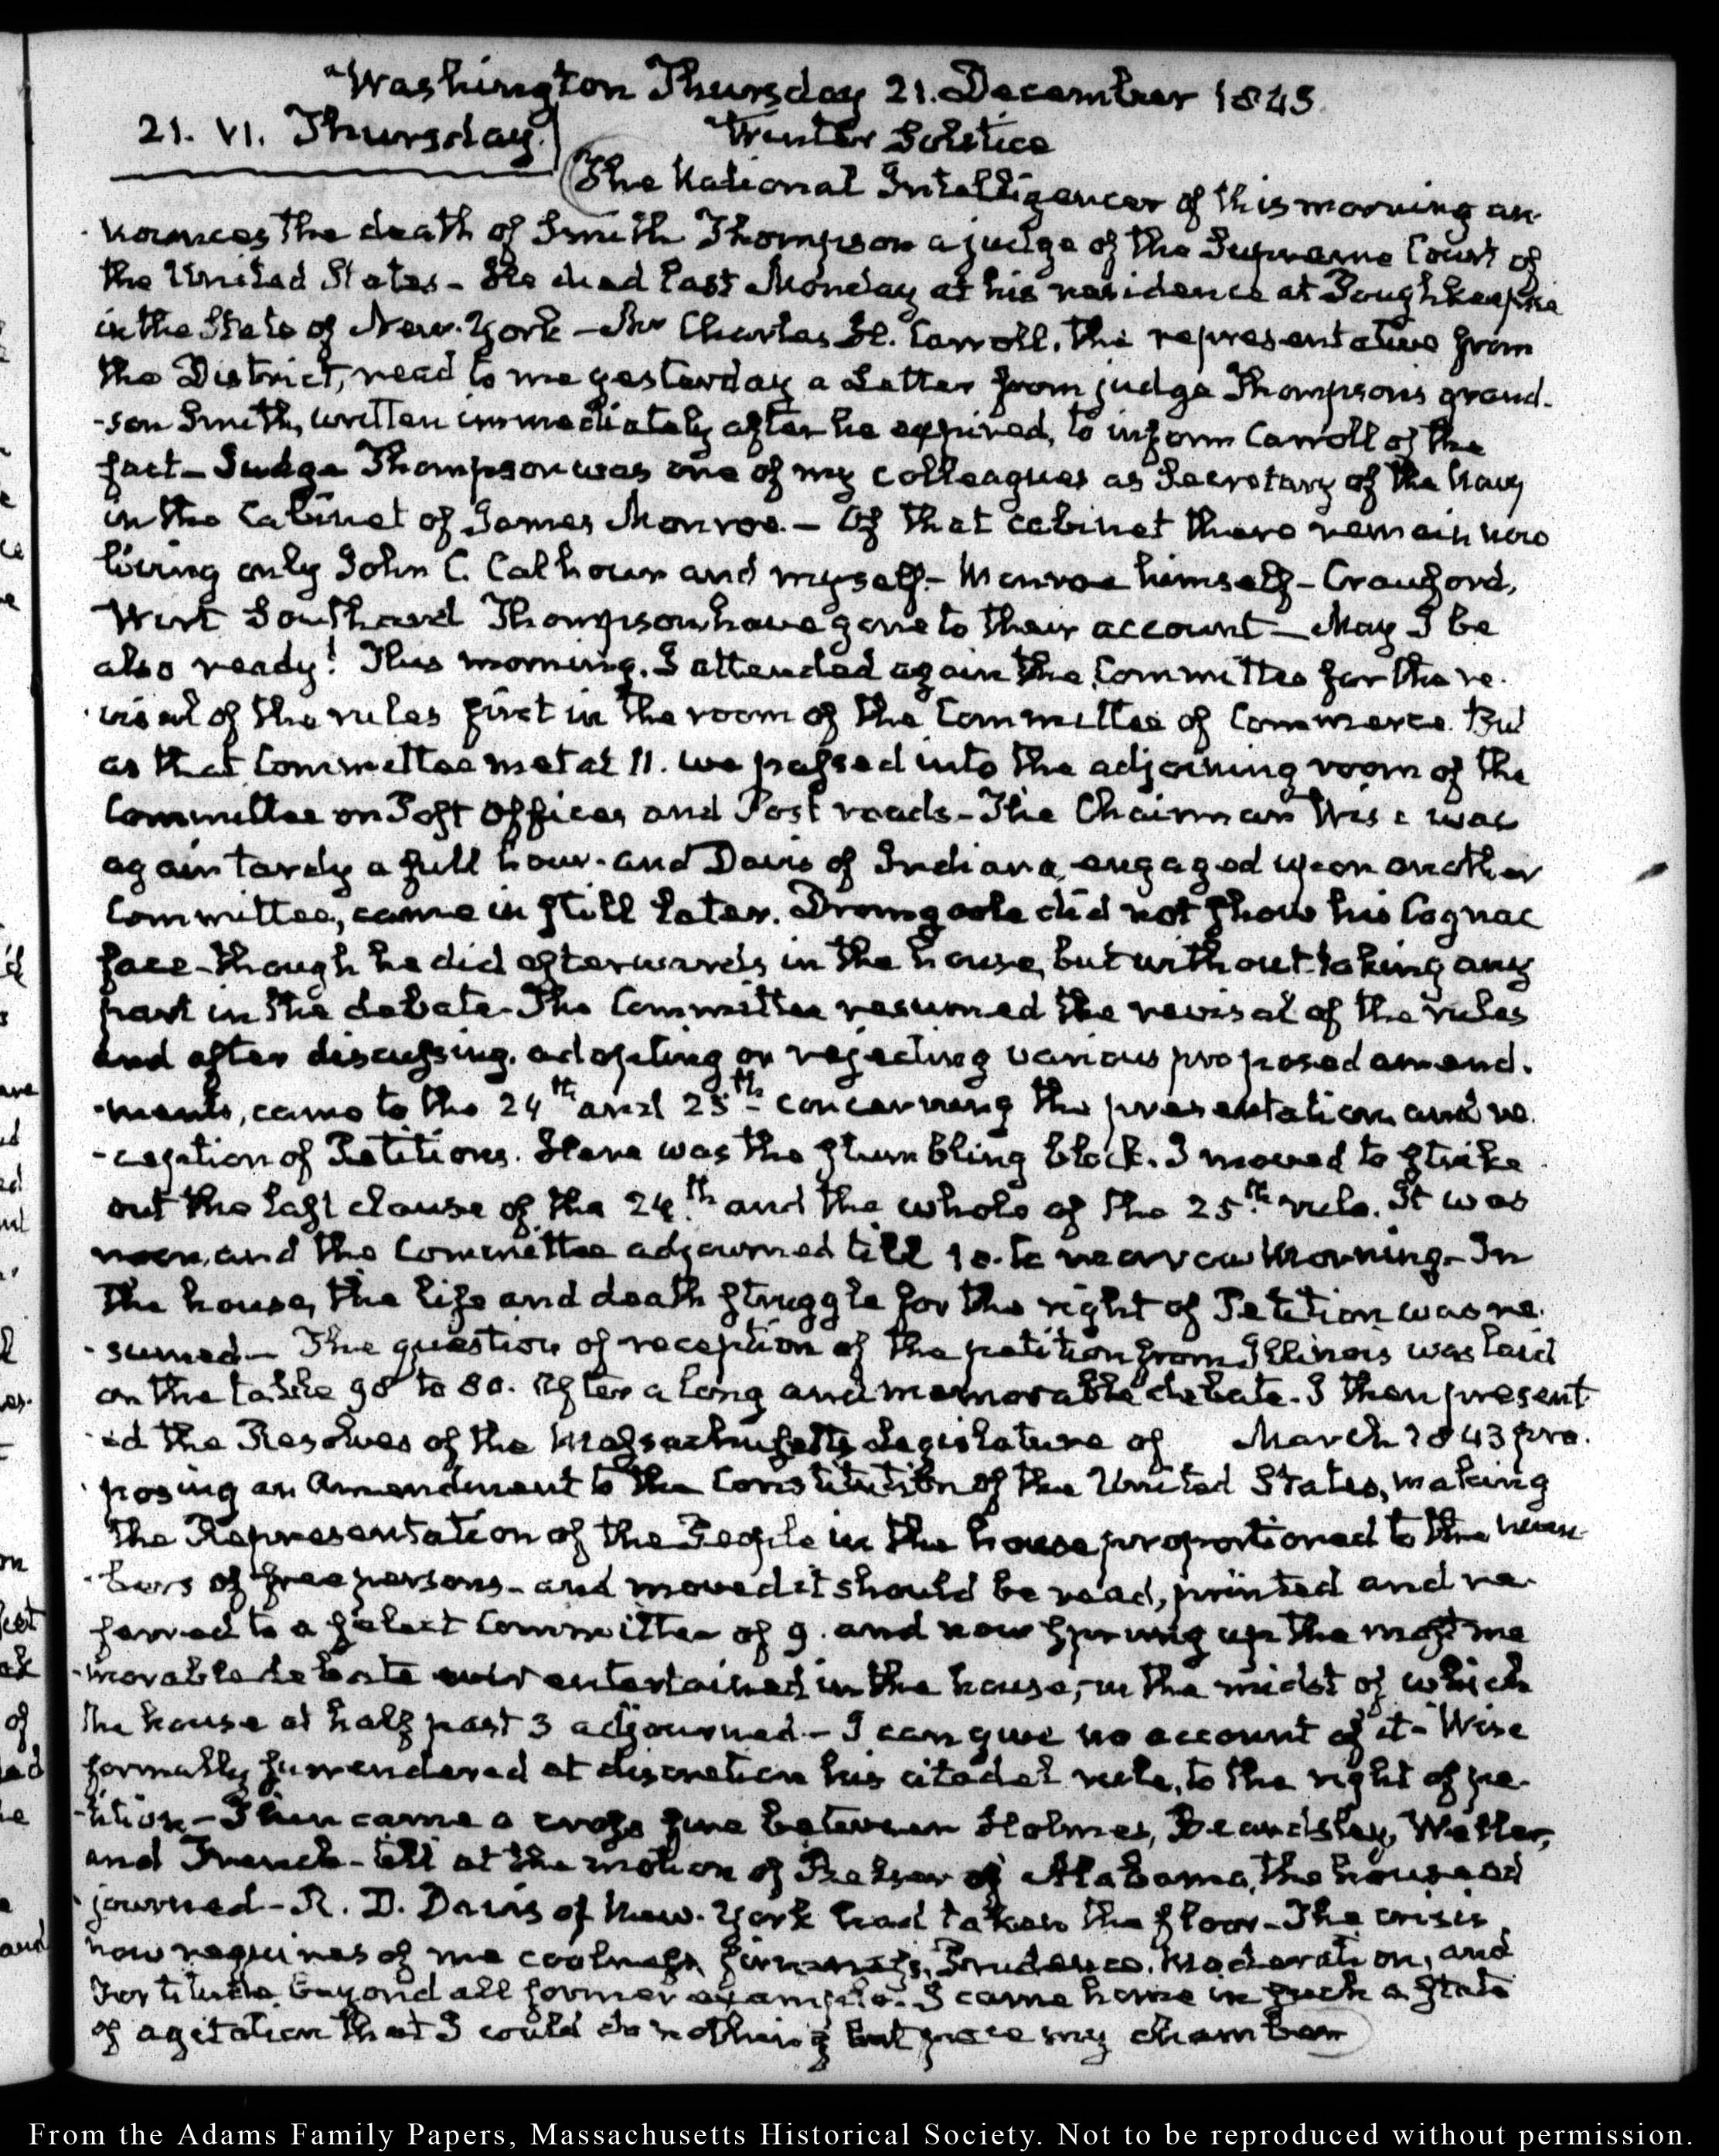 Washington Thursday 21. December 1843
21. VI. Thursday.
Winter Solstice
The National Intelligencer of this morning an-
-nounces the death of Smith Thompson a judge of the Supreme Court of
the United States - He died last Monday at his residence at Poughkeepsie
in the State of New-York - Mr Charles H. Carroll, the representative from
the District, read to me yesterday a Letter from judge Thompson's grand-
-son Smith, written immediately after he expired, to inform Carroll of the
fact - Judge Thompson was one of my colleagues as Secretary of the Navy
in the Cabinet of James Monroe. - Of that cabinet there remain now
living only John C. Calhoun and myself - Monroe himself - Crauford,
Wirt Southard Thompson have gone to their account - May I be
also ready! This morning, I attended again the Committee for the re-
-visal of the rules first in the room of the Committee of Commerce. But
as that Committee met at 11. we passed into the adjoining room of the
Committee on Post Offices and Post roads - The Chairman Wise was
again tardy a full hour - and Davis of Indiana, engaged upon another
Committee, came in still later. Dromgoole did not show his Cognac
face - though he did afterwards in the house, but without taking any
part in the debate - The Committee resumed the revisal of the rules
and after discussing, adopting or rejecting various proposed amend-
-ments, came to the 24th and 25th - concerning the presentation and re-
-ception of Petitions. Here was the stumbling block. I moved to strike
out the last clause of the 24th and the whole of the 25th rule. It was
noon, and the Committee adjourned till 10. to morrow Morning - In
the house, the life and death struggle for the right of Petition was re-
-sumed - The question of reception of the petition from Illinois was laid
on the table 98 to 80. After a long and memorable debate. I then present-
-ed the Resolves of the Massachusetts Legislature of March 1843 pro-
-posing an Amendment to the Constitution of the United States, making
the Representation of the People in the house proportioned to the num-
-bers of free persons - and moved it should be read, printed and re-
ferred to a select Committee of 9. and now sprung up the most me
-morable debate ever entertained in the house, in the midst of which
the house at half past 3 adjourned - I can give no account of it - Wise
formally surrendered at discretion his citadel rule, to the right of pe-
-tition - Then came a cross fire between Holmes, Beardsley, Weller,
and French - till at the motion of of Alabama, the house ad
-journed - R. D. Davis of New-York had taken the floor - The crisis
now requires of me coolness, firmness, Prudence, Moderation, and
Fortitude, beyond all former example. I came home in such a state
of agitation that I could do nothing but pace my chamber
From the Adams Family Papers, Massachusetts Historical Society. Not to be reproduced without permission.